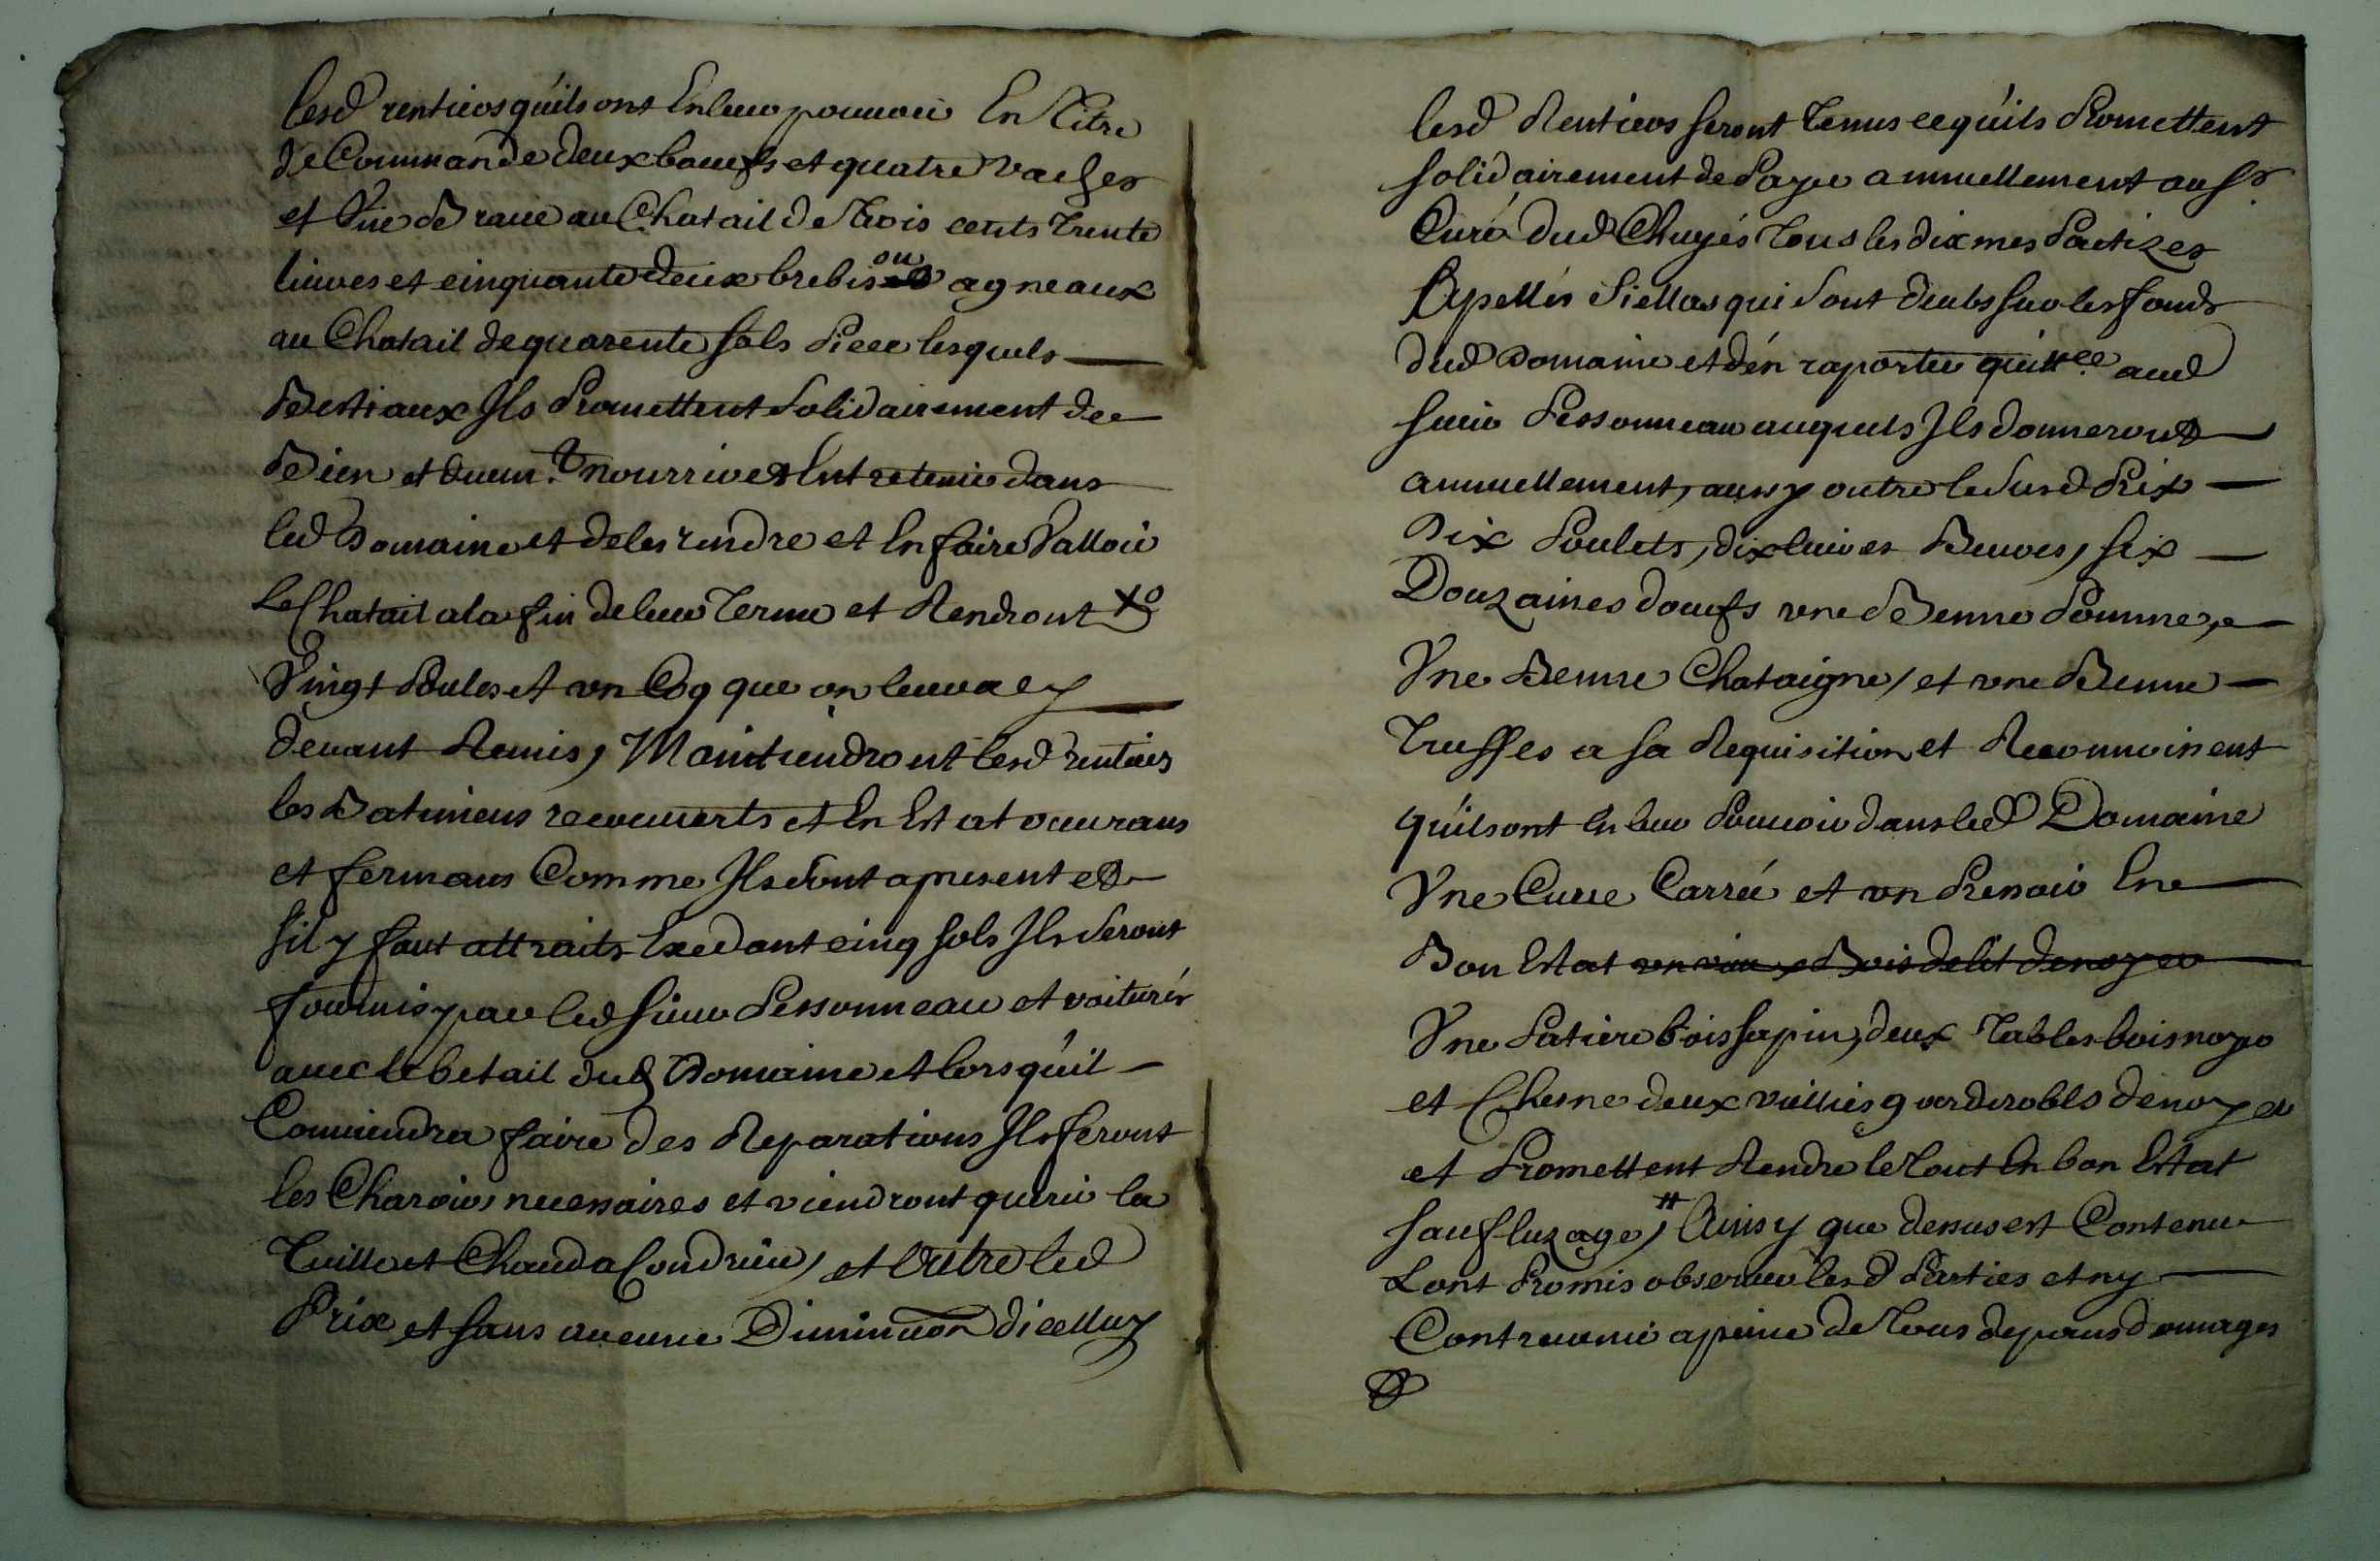 lesd rentiers quils ont En leur pouvoir En Titre
de Commande deux boeufs et quatre vaches
et Une Braue au Chatail de Trois cents Trente
liures et cinquante deux brebis ou agneaux
au Chatail de quarente sols Piece lesquels
Bestiaux Ils Promettent solidairement de
Bien et duem.t nourrir et Entretenir dans
led Domaine et de les rendre et En faire Valloir
Le Chatail a la fin de leur Terme et Rendront
Vingt Poules et vn Coq que on leur a cy
deuant Remis, Maintiendront lesd rentiers
les Batimens recouuerts et En Estat ouurans
et fermans Comme Ils sont apresent et
sil y faut attraits Exedant cinq sols Ils seront
fournis par led sieur Pessonneau et voiturés
auec le betail dud Domaine et lors quil
Conuiendra faire des Reparations Ils feront
les Charois necessaires et viendront querir la
Tuille et Chaud a Condrieu, et Outre led
Prix et sans aucune Diminuon dicelluy
lesd Rentiers seront Tenus ce quils Promettent
solidairement de Payer annuellement au Sr.
Curé dud Chuyés Tous les dixmes
Apellés qui sont deubs sur les fonds
dud Domaine et dén raporter quitt.ce aud
sieur Pessonneau auquels Ils donneront
annuellement, aussy outre le susd Prix
Dix Poulets, dix liures Beurre, six
Douzaines doeufs vne Benne Pomme,
Vne Benne Chataigne, et vne Benne
Truffes a sa Requisition et Reconnoissent
quils ont En leur Pouuoir dans led Domaine
Vne Cuue Carrée et vn Pressoir En
Bon Estat vn vieux Bois de lit de noyer
Vne Patiere bois sapin, deux Tables bois noyer
et Chesne deux vieillies garderobes de noyer
et Promettent Rendre le Tout En bon Estat
sauf luzage, # Ainsy que dessus est Contenu
Lont Promis obseruer lesd Parties et ny
Contreuenir a peine de Tous depans domages